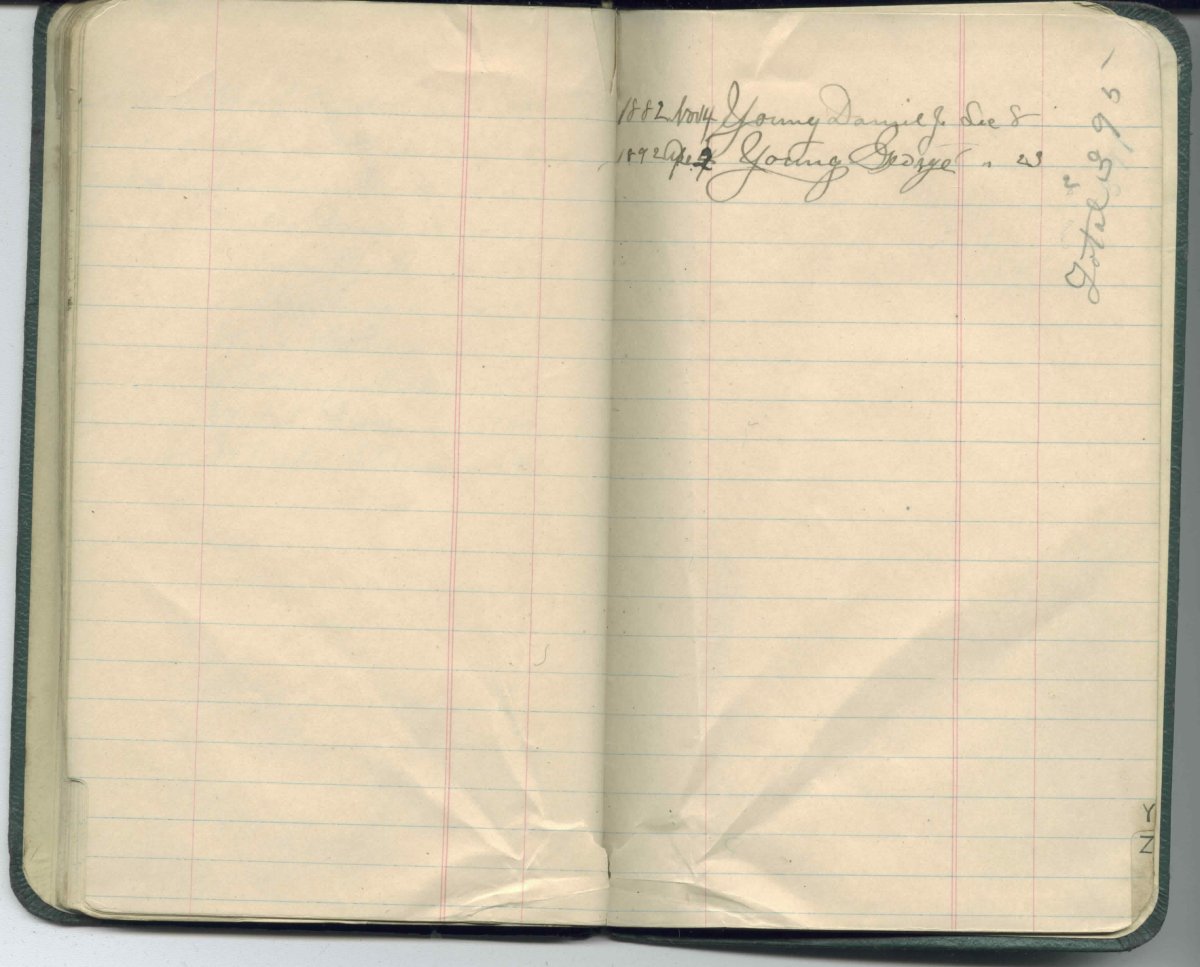 1882 Nov 4 Young Daniel J. Sec 8
1892 Apr. 2 Young George " 23
Total 2395
Y
Z